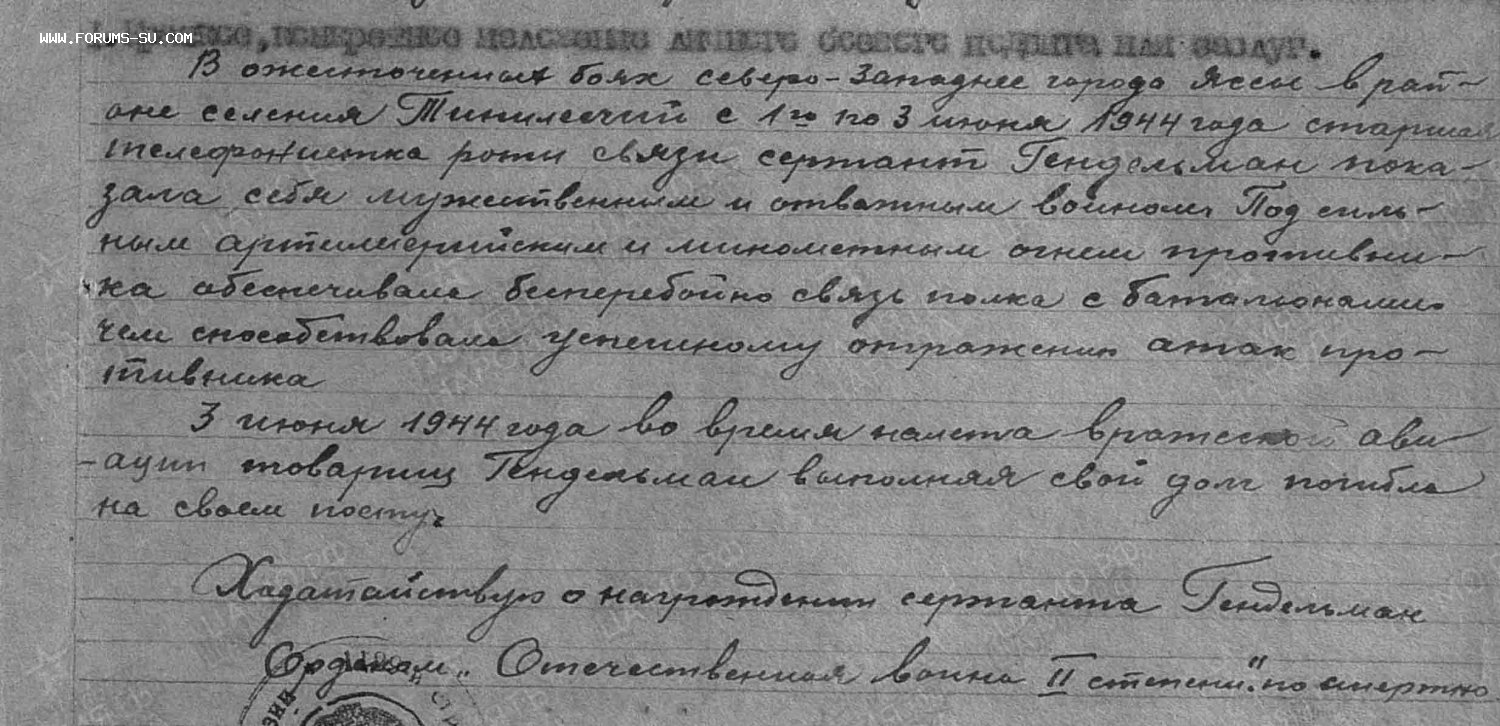 WWW.FORUMS-SU.COM
конкретное изложение личного боевого подвига или заслуг.
В ожесточенных боях северо-западнее города Яссы в рай-
оне селения Тинилесчий с 1го по 3 июня 1944 года старшая
телефонистка роты связи сержант Гендельман пока-
зала себя мужественным и отважным воином. Под силь-
ным артиллерийским и минометным огнем противни-
ка обеспечивала бесперебойно связь полка с баталионами
чем способствовала успешному отражению атак про-
тивника
3 июня 1944 года во время налета вражеской ави-
-ации товарищ Гендельман выполняя свой долг погибла
на своем посту.
Ходатайствую о награждении сержанта Гендельман
Орденом „Отечественная война II степени" посмертно